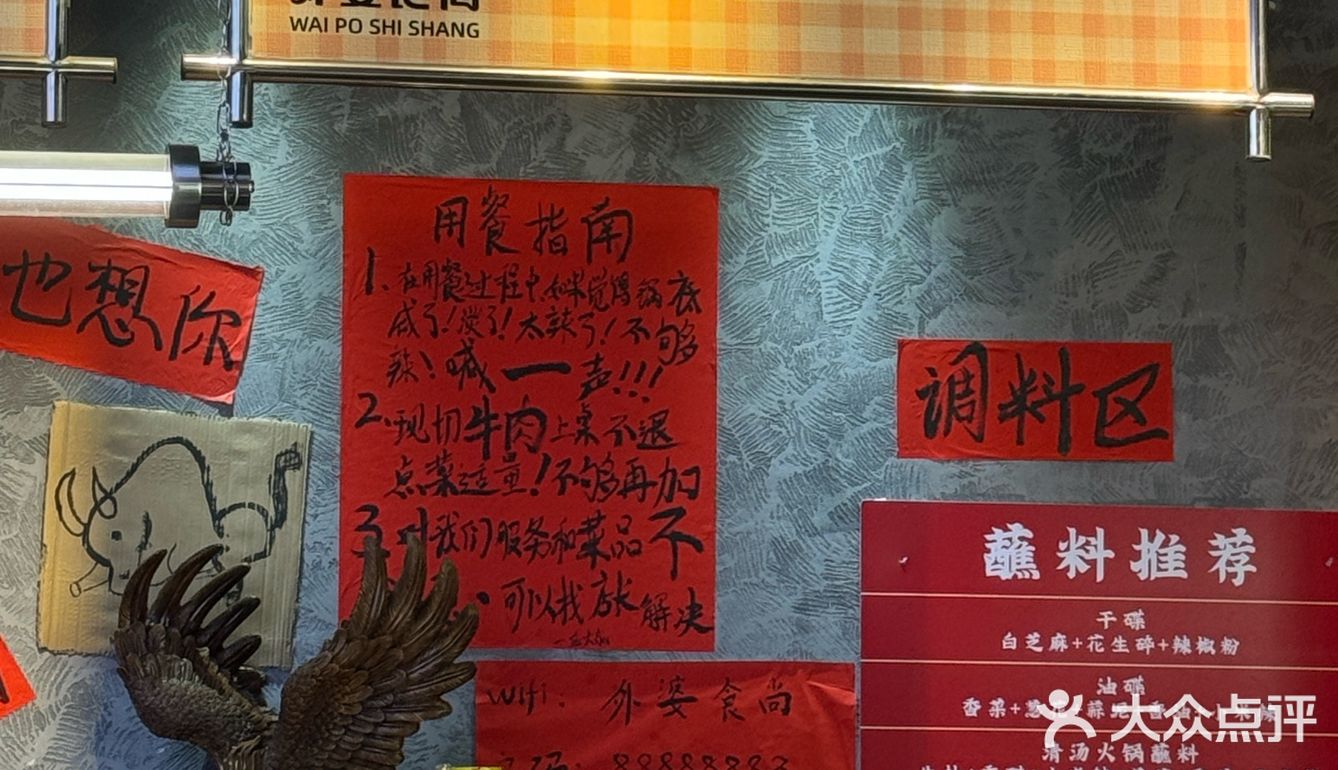 WAI PO SHI SHANG
也想你
用餐指南
1.在用餐过程中,如果觉得锅底
咸了!淡了!太辣了!不够
辣!喊一声!!!
2.现切牛肉上桌不退
点菜适量!不够再加
3.对我们服务和菜品不
可以找店长解决
调料区
蘸料推荐
干碟
白芝麻+花生碎+辣椒粉
油碟
香菜+葱花
清汤火锅蘸料
wifi: 外婆食尚
88888883
大众点评